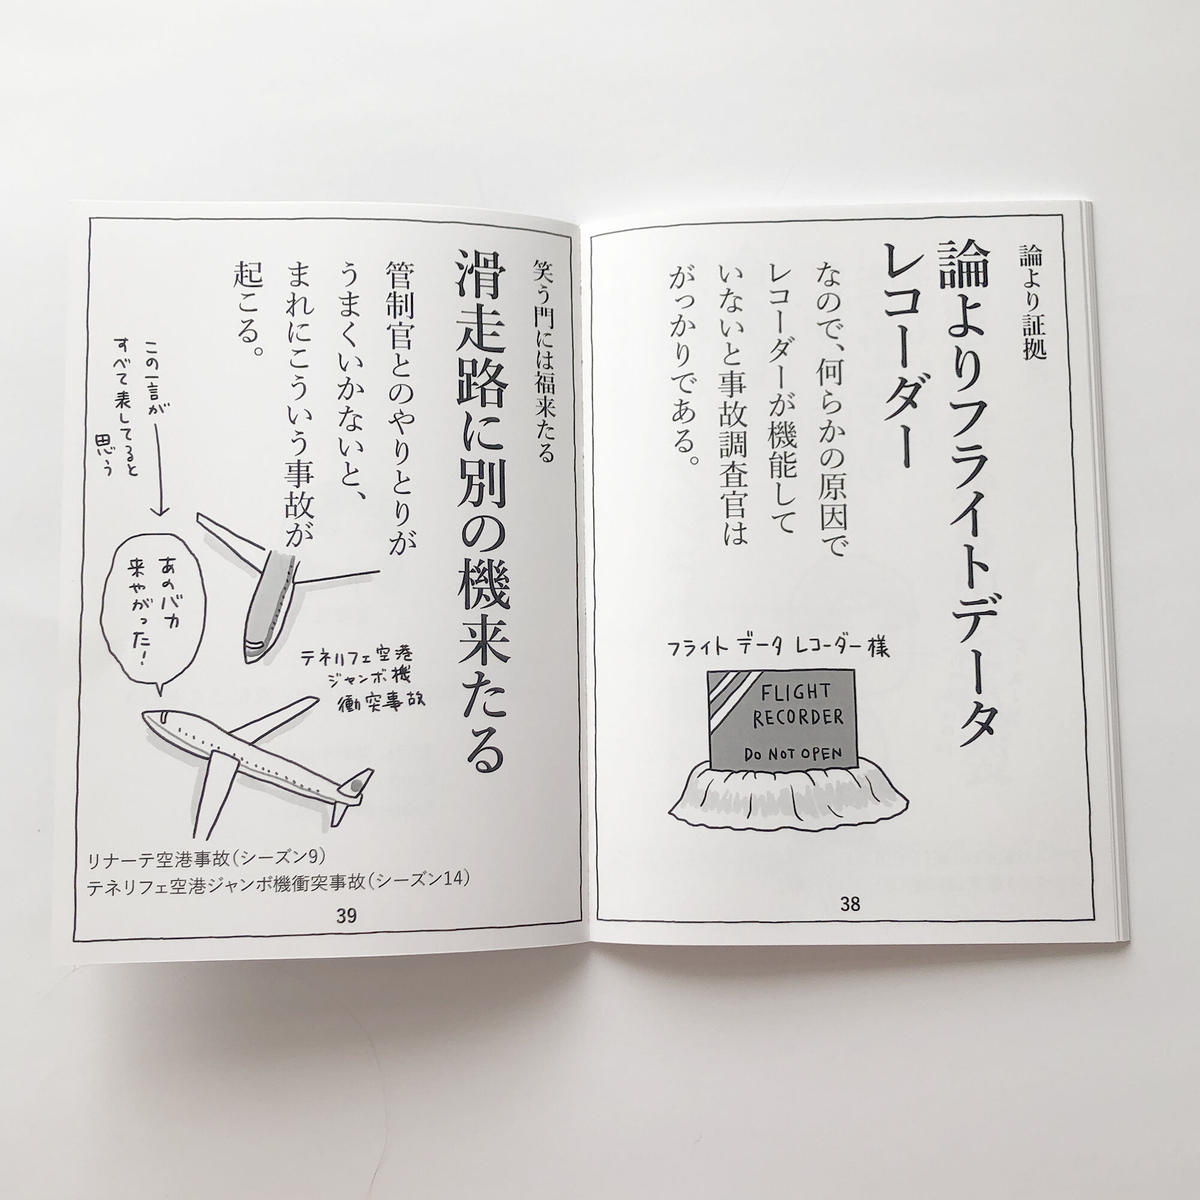 論より証拠
論よりフライトデータ
レコーダー
なので、何らかの原因で
レコーダーが機能して
いないと事故調査官は
がっかりである。
フライト データ レコーダー様
FLIGHT
RECORDER
DO NOT OPEN
38
笑う門には福来たる
滑走路に別の機来たる
管制官とのやりとりが
うまくいかないと、
まれにこういう事故が
起こる。
この一言が
すべて表してると
思う
あのバカ
来やがった!
テネリフェ空港
ジャンボ機
衝突事故
リナーテ空港事故(シーズン9)
テネリフェ空港ジャンボ機衝突事故(シーズン14)
39